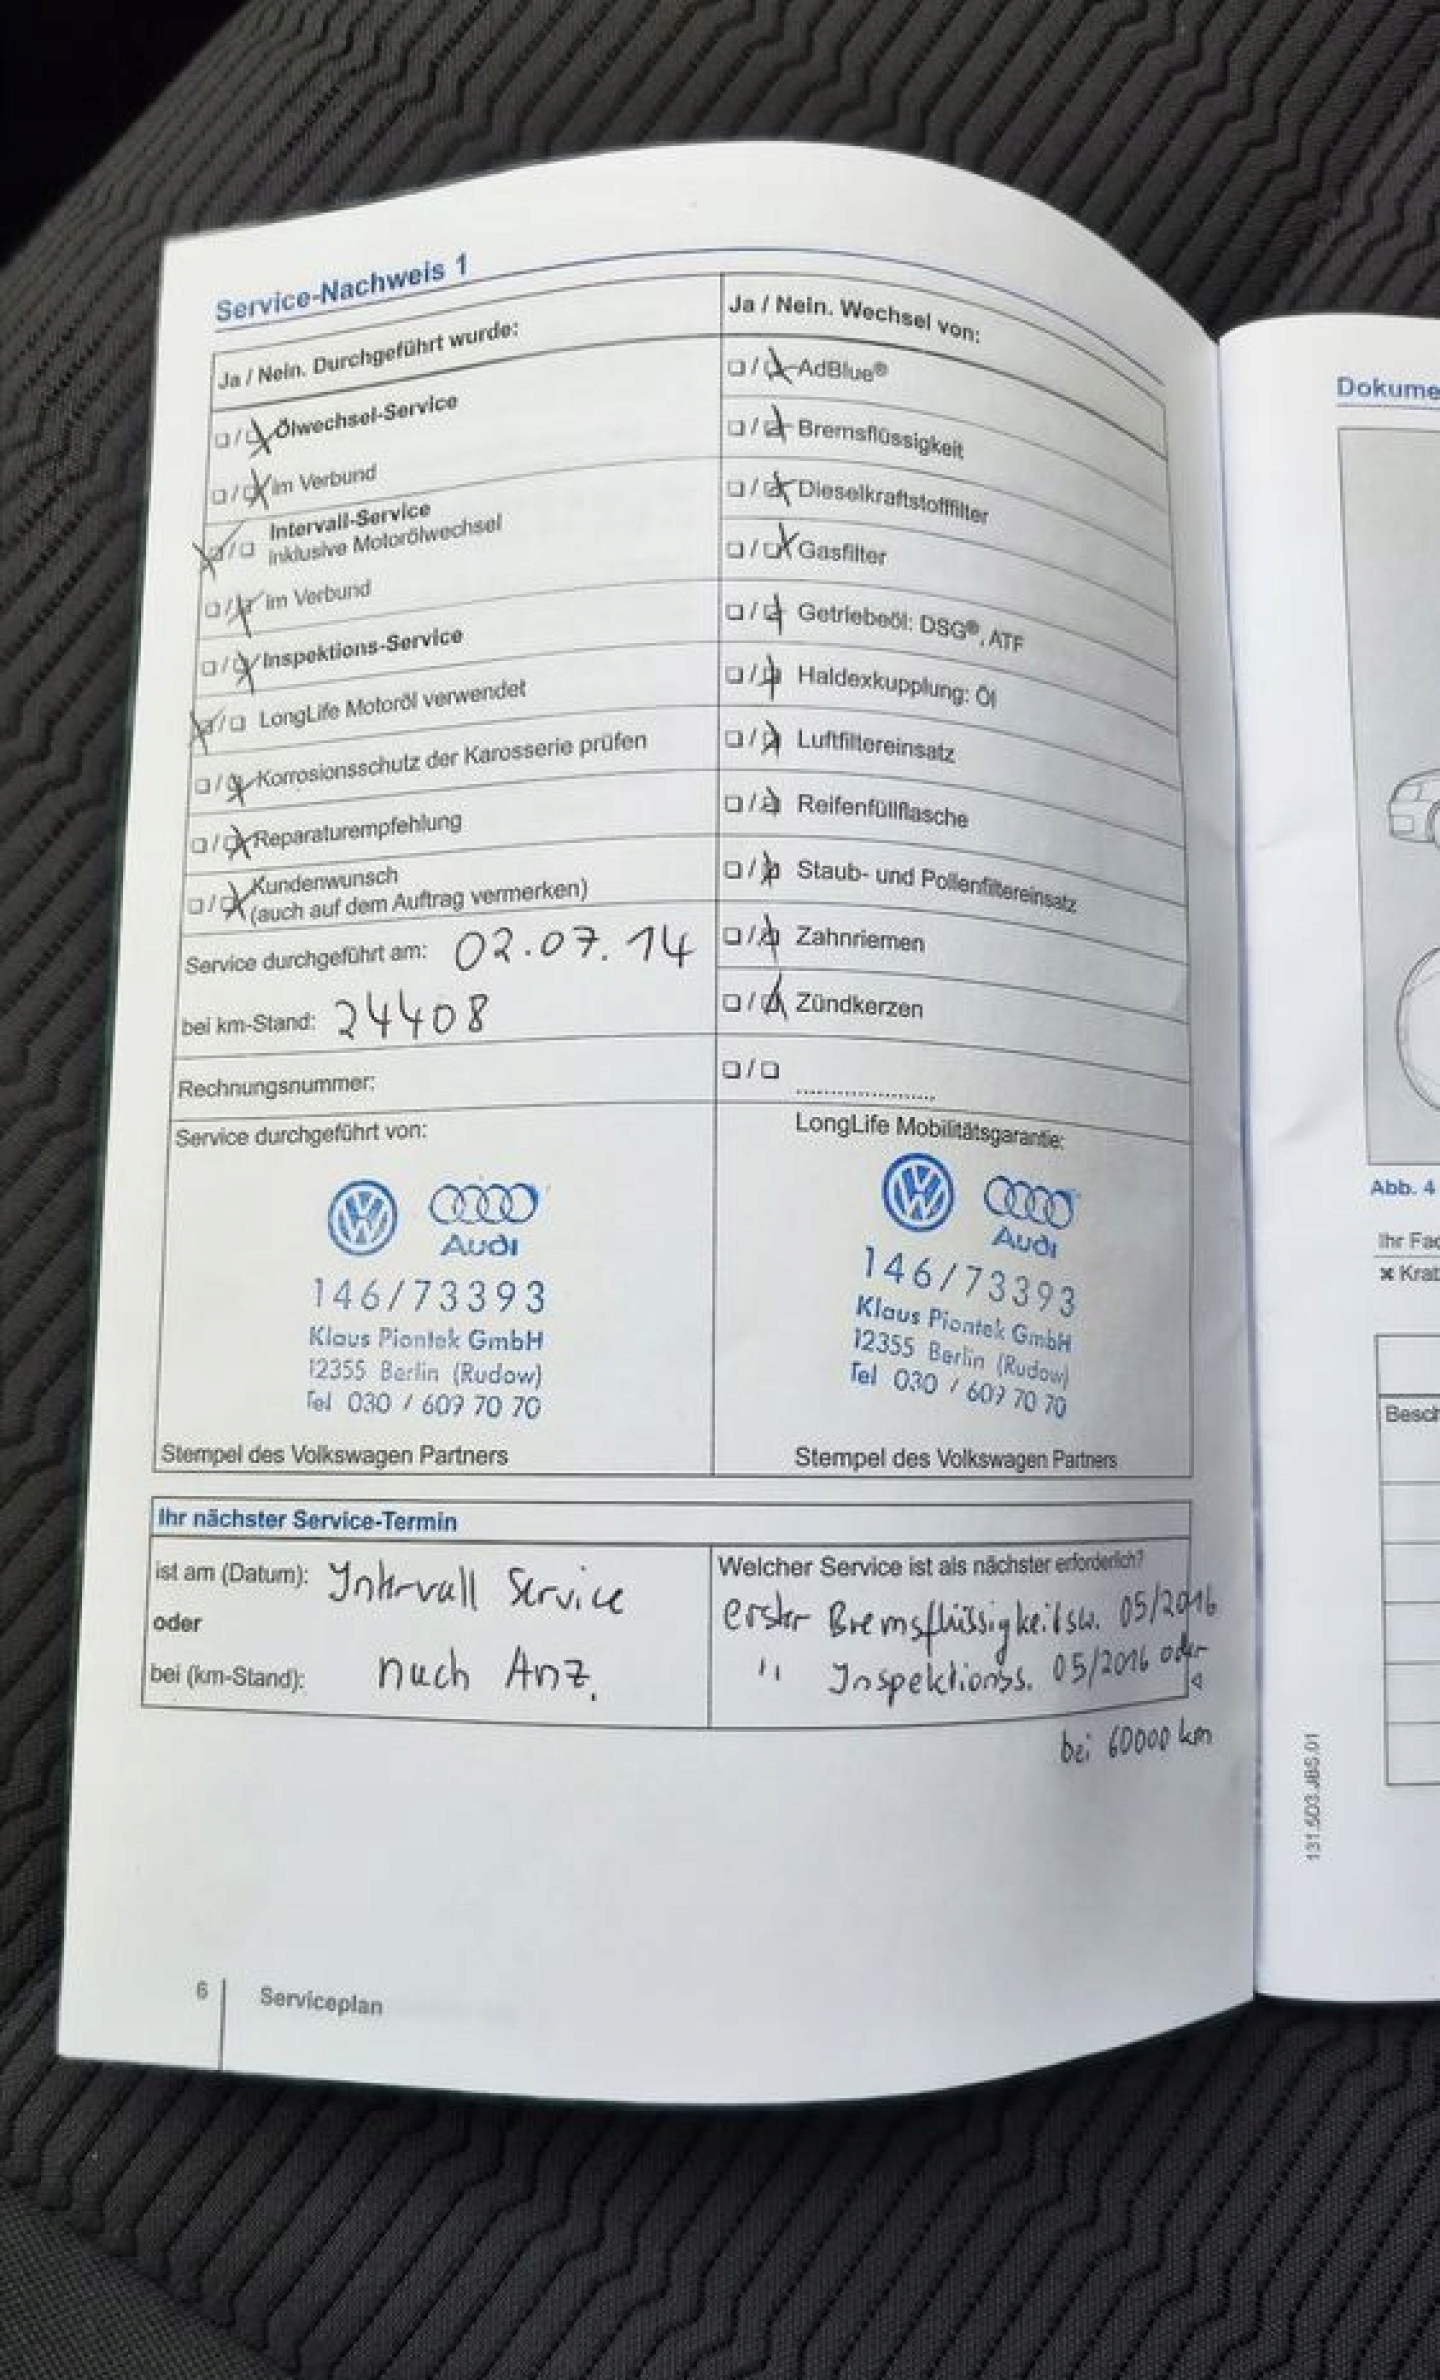 Service-Nachweis 1
Ja / Nein. Durchgeführt wurde:
Ölwechsel-Service
im Verbund
Intervall-Service
inklusive Motorölwechsel
im Verbund
Inspektions-Service
LongLife Motoröl verwendet
Korrosionsschutz der Karosserie prüfen
Reparaturempfehlung
Kundenwunsch
(auch auf dem Auftrag vermerken)
Service durchgeführt am: 02.07.14
bei km-Stand: 24408
Rechnungsnummer:
Service durchgeführt von:
Audi
146/73393
Klaus Piontek GmbH
12355 Berlin (Rudow)
Tel 030 / 609 70 70
Stempel des Volkswagen Partners
Ja / Nein. Wechsel von:
AdBlue®
Bremsflüssigkeit
Dieselkraftstofffilter
Gasfilter
Getriebeöl: DSG®, ATF
Haldexkupplung: Öl
Luftfiltereinsatz
Reifenfüllflasche
Staub- und Pollenfiltereinsatz
Zahnriemen
Zündkerzen
LongLife Mobilitätsgarantie:
Audi
146/73393
Klaus Piontek GmbH
12355 Berlin (Rudow)
Tel 030 / 609 70 70
Stempel des Volkswagen Partners
Ihr nächster Service-Termin
ist am (Datum): Intervall Service
oder
bei (km-Stand): nach Anz.
Welcher Service ist als nächster erforderlich?
erster Bremsflüssigkeitsw. 05/2016
" Inspektionss. 05/2016 oder
bei 60000 km
6 Serviceplan
Dokume
Abb. 4
Ihr Fac
Krat
Besch
131.5D3.JBS.01